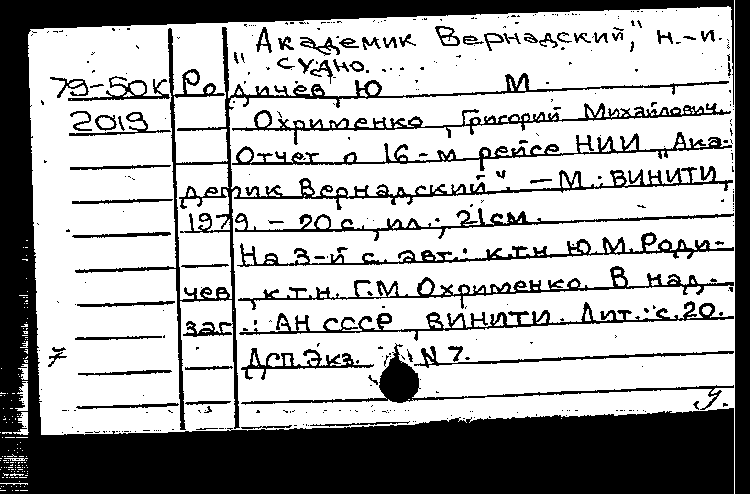 „Академик Вернадский," н.-и.
судно.
79-50к Родичев, Ю М
2019 Охрименко, Григорий Михайлович.
Отчет о 16-м рейсе НИИ „Ака-
демик Вернадский". – М.: ВИНИТИ,
1979. – 20 с., ил.; 21 см.
На 3-й с. авт.: к.т.н Ю.М. Роди-
чев, к.т.н. Г.М. Охрименко. В над-
заг.: АН СССР, ВИНИТИ. Лит.: с. 20.
7 Дсп. Экз. N 7.
у.